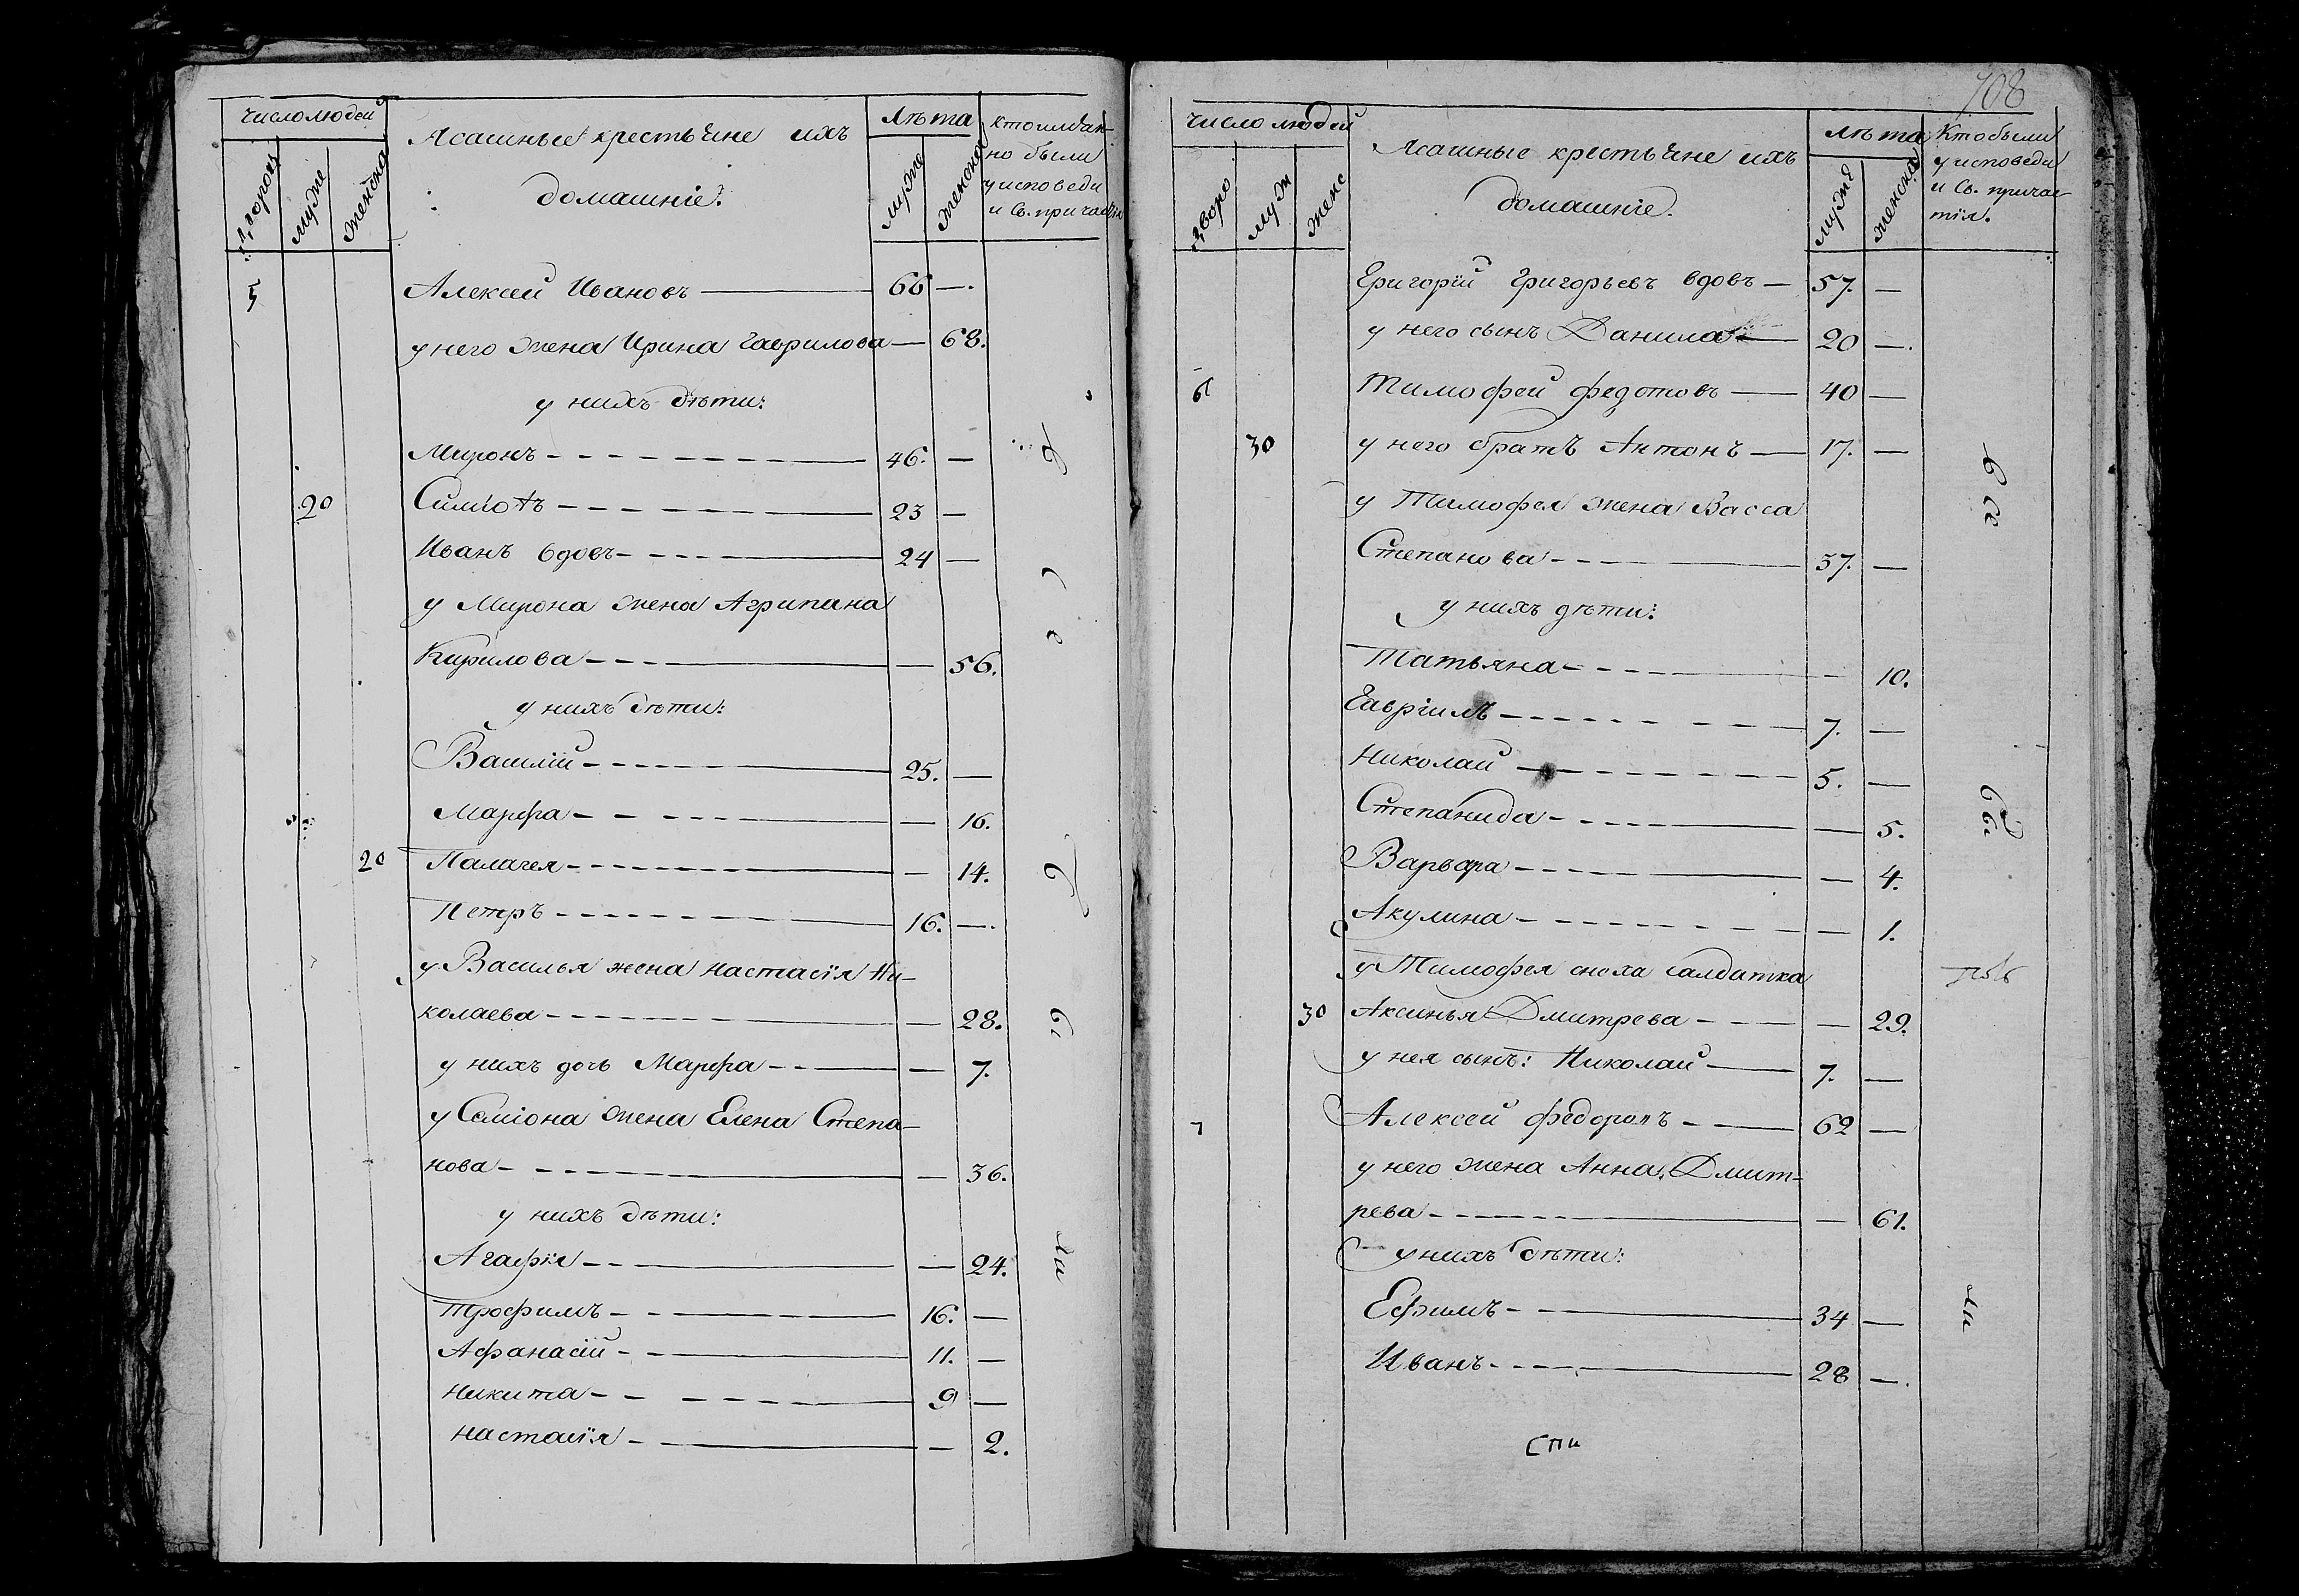 число людей
Ясашные крестьяне ихъ
домашніе:
лѣта
дворов
мужс
женска
мужс
женска
но были
у исповеди
и Св. причастія
5
Алексей Ивановъ 66 —.
у него жена Ирина Гаврилова — 68.
у нихъ дѣти:
Миронъ 46. —
20 Симіонъ 23 —
Иванъ вдовъ 24 —
у Мирона жена Агрипана
Кирилова — 56.
у нихъ дѣти:
Василій 25. —
Марфа — 16.
20 Палагея — 14.
Петръ 16. —.
у Василья жена Настасія Ни-
колаева — 28.
у нихъ дочь Марфа — 7.
у Семіона жена Елена Степа-
нова — 36.
у нихъ дѣти:
Агафія — 24.
Трофимъ 16. —
Афанасій 11. —
Никита 9 —
Настасія — 2.
108
число людей
Ясашные крестьяне ихъ
домашніе.
лѣта
Кто были
у исповеди
и Св. причас-
тія.
дворо
муж
женс
мужс
женска
Григорій Григорьевъ вдовъ — 57. —
у него сынъ Данила 20 —.
6 Тимофей Федотовъ 40 —
30 у него братъ Антонъ 17. —
у Тимофея жена Васса
Степанова 37. —
у нихъ дѣти:
Татьяна — 10.
Гавріилъ 7. —
Николай 5. —
Степанида — 5.
Варвара — 4.
Акулина — 1.
у Тимофея сноха Салдатка
30 Аксинья Дмитрева — 29.
у нея сынъ: Николай 7. —
7 Алексей Федоровъ 62 —
у него жена Анна Дмит-
рева — 61.
у нихъ дѣти:
Ефимъ 34 —
Иванъ 28 —.